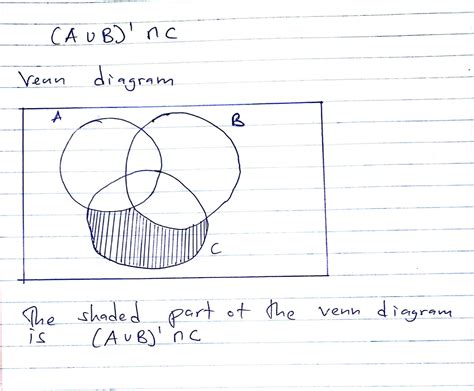 (A ∪ B)' ∩ C
Venn diagram
A
B
C
The shaded part of the venn diagram
is (A∪B)' ∩ C